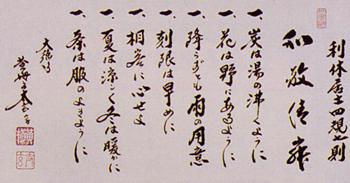 利休居士四規七則
和敬清寂
一、炭は湯の沸くように
一、花は野にあるように
一、降らずとも雨の用意
一、刻限は早めに
一、相客に心せよ
一、夏は涼しく冬は暖かに
一、茶は服のよきように
大徳寺